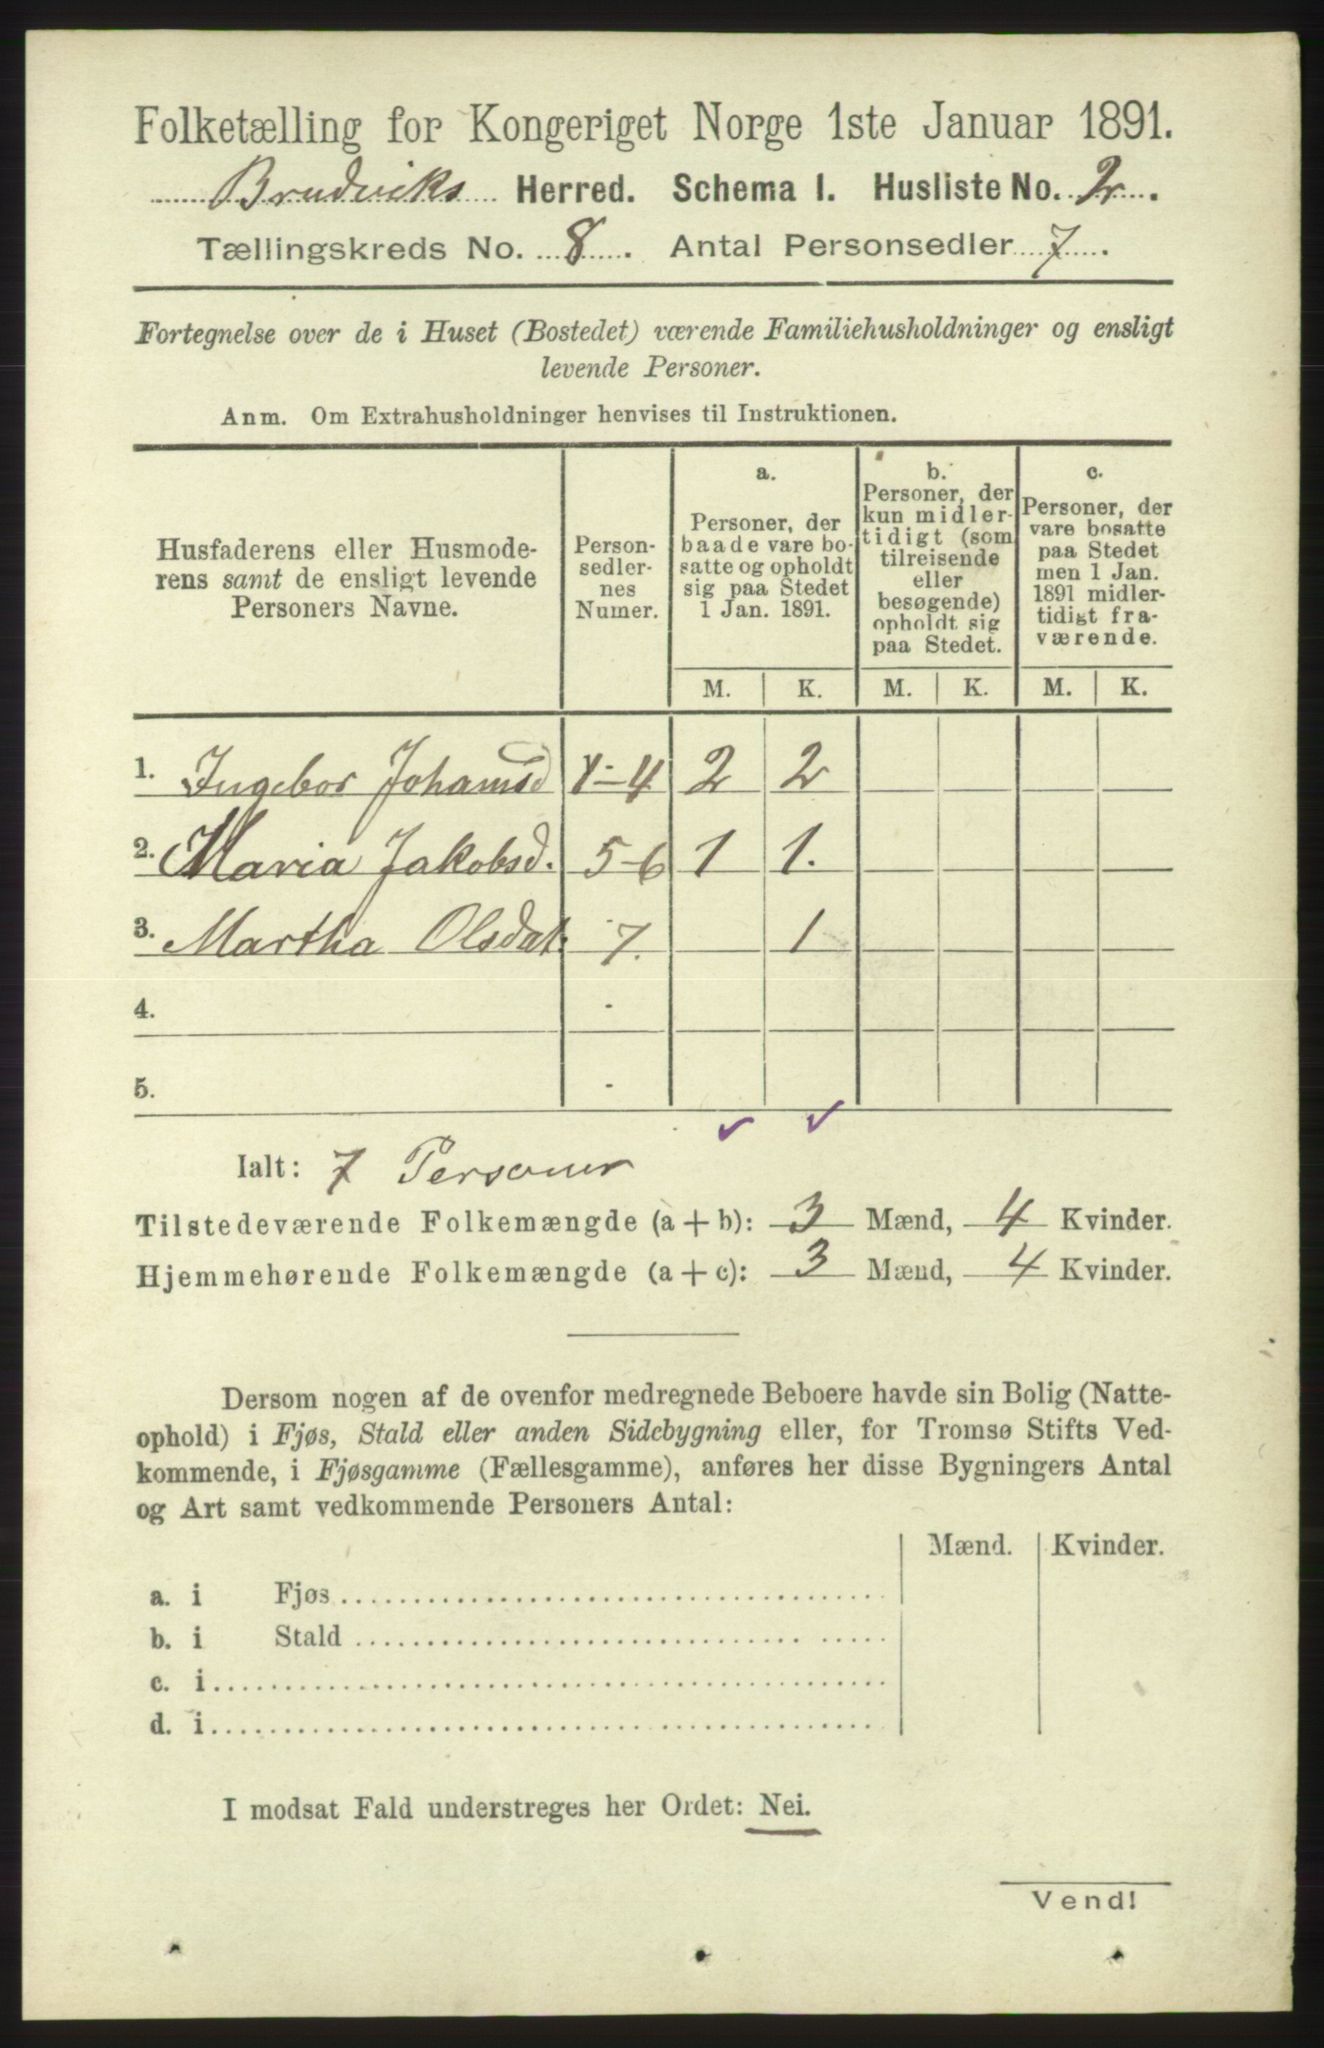 Folketælling for Kongeriget Norge 1ste Januar 1891.
Brudviks Herred. Schema I. Husliste No. 2.
Tællingskreds No. 8. Antal Personsedler 7.
Fortegnelse over de i Huset (Bostedet) værende Familiehusholdninger og ensligt
levende Personer.
Anm. Om Extrahusholdninger henvises til Instruktionen.
Husfaderens eller Husmode-
rens samt de ensligt levende
Personers Navne.
Person-
sedler-
nes
Numer.
a.
Personer, der
baade vare bo-
satte og opholdt
sig paa Stedet
1 Jan. 1891.
b.
Personer, der
kun midler-
tidigt (som
tilreisende
eller
besøgende)
opholdt sig
paa Stedet.
c.
Personer, der
vare bosatte
paa Stedet
men 1 Jan.
1891 midler-
tidigt fra-
værende.
M. K. M. K. M. K.
1. Ingebor Johansd 1-4 2 2
2. Maria Jakobsd. 5-6 1 1.
3. Martha Olsdat. 7. 1
4. -
5. -
Ialt: 7 Personer
Tilstedeværende Folkemængde (a + b): 3 Mænd, 4 Kvinder.
Hjemmehørende Folkemængde (a + c): 3 Mænd, 4 Kvinder.
Dersom nogen af de ovenfor medregnede Beboere havde sin Bolig (Natte-
ophold) i Fjøs, Stald eller anden Sidebygning eller, for Tromsø Stifts Ved-
kommende, i Fjøsgamme (Fællesgamme), anføres her disse Bygningers Antal
og Art samt vedkommende Personers Antal:
Mænd. Kvinder.
a. i Fjøs
b. i Stald
c. i
d. i
I modsat Fald understreges her Ordet: Nei.
Vend!